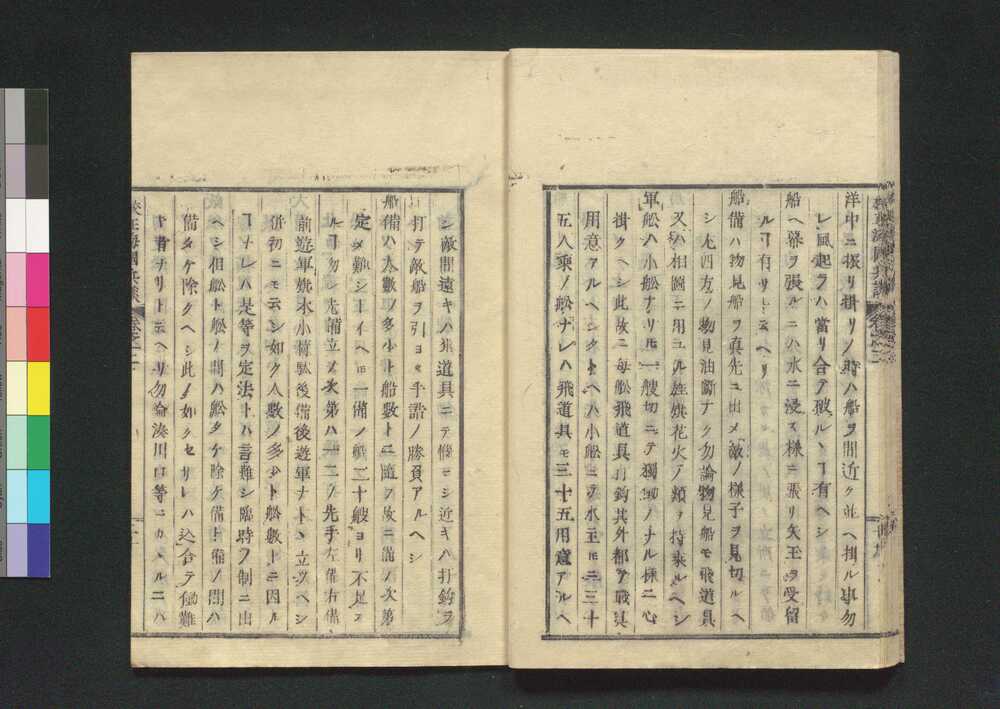 洋中ニ掛リノ時ハ船ヲ間近ク並ヘ掛ル事勿
レ風起ラハ當リ合テ破ルヽヿ有ヘシ
船ヘ幕ヲ張ルニハ水ニ浸ス様ニ張リ矢玉ヲ受留
ルヿ有リト云ヘリ
船備ハ物見船ヲ真先ニ出メ敵ノ様子ヲ見切ルヘ
シ尤四方ノ物見油斷ナク勿論物見船モ飛道具
又ハ相圖ニ用ユル炬烽花火ノ類ヲ持乘ルヘシ
軍舩ハ小舩ナリ𪜈一艘切ニテ獨働ノナル様ニ心
掛クヘシ此故ニ毎舩飛道具打鈎其外都テ戰具
用意アルヘシタトヘハ小舩ニテ水主𪜈ニ三十
五人乘ノ舩ナレハ飛道具モ三十五用意アルヘ
シ敵間遠キハ飛道具ニテ惱マシ近ギハ打鈎ヲ
打テ敵船ヲ引ヨセ手詰ノ勝負アルヘシ
船備ハ人數ノ多少ト船數トニ隨フ故ニ備ノ次第
定メ難シトイヘ𪜈一備ノ船二十艘ヨリ不足ス
ルヿ勿レ先備立ノ次第ハ一二ノ先手左備右備
前遊軍旗本小荷駄後備後遊軍ナトヽ立ツヘシ
併初ニモ云シ如ク人數ノ多少ト舩數トニ因ル
ヿナレハ是等ヲ定法トハ言難シ臨時ノ制ニ由
ヘシ但舩ト舩ノ間ハ舩タケ除ケ備ト備ノ間ハ
備タケ除クヘシ此ノ如クセサレハ込合テ働難
キ者ナリト云ヘリ勿論湊川口等ニカヽルニハ